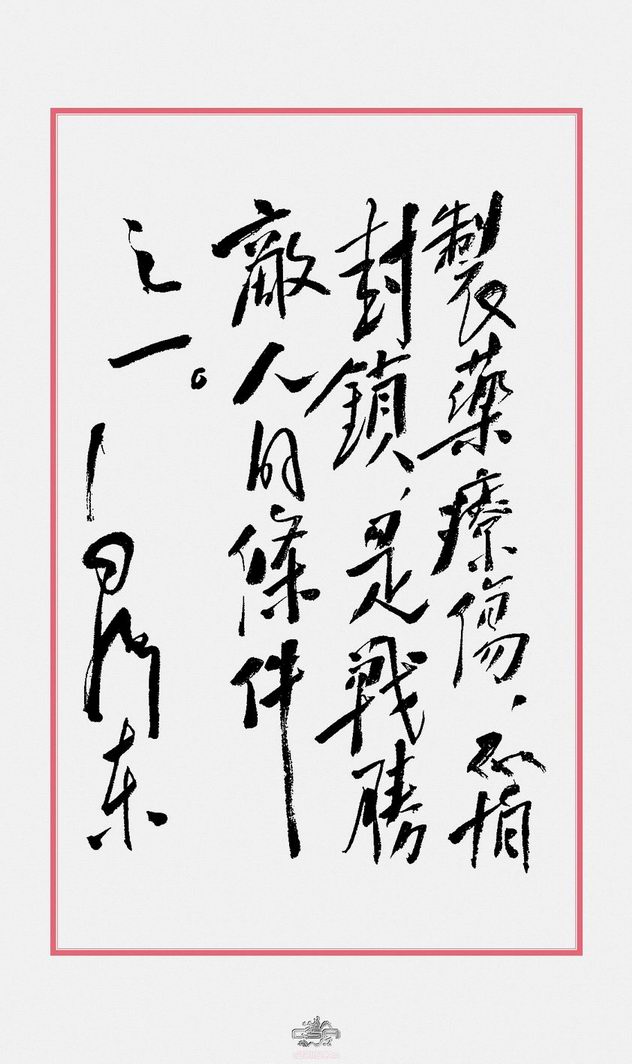 製藥療傷，不怕
封鎖，是戰勝
敵人的條件
之一。
丨毛澤东